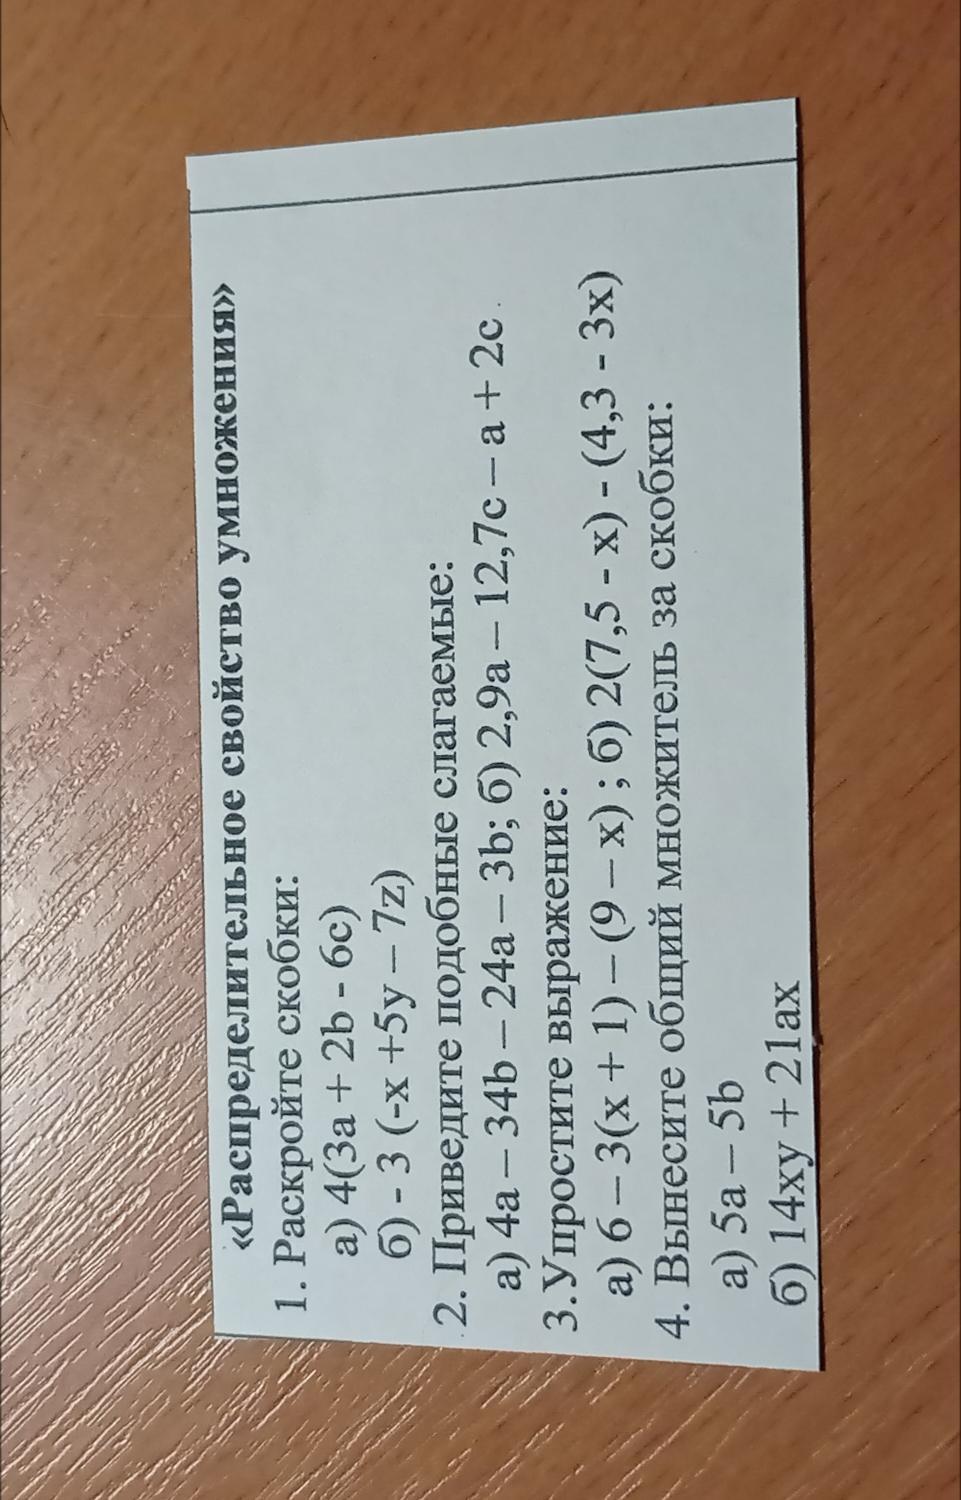 «Распределительное свойство умножения»
1. Раскройте скобки:
а) 4(3a + 2b - 6c)
б) - 3 (-x +5y – 7z)
2. Приведите подобные слагаемые:
а) 4a – 34b – 24a – 3b; б) 2,9a – 12,7c – a + 2c
3.Упростите выражение:
а) 6 – 3(x + 1) – (9 – x) ; б) 2(7,5 - x) - (4,3 - 3x)
4. Вынесите общий множитель за скобки:
а) 5a – 5b
б) 14xy + 21ax